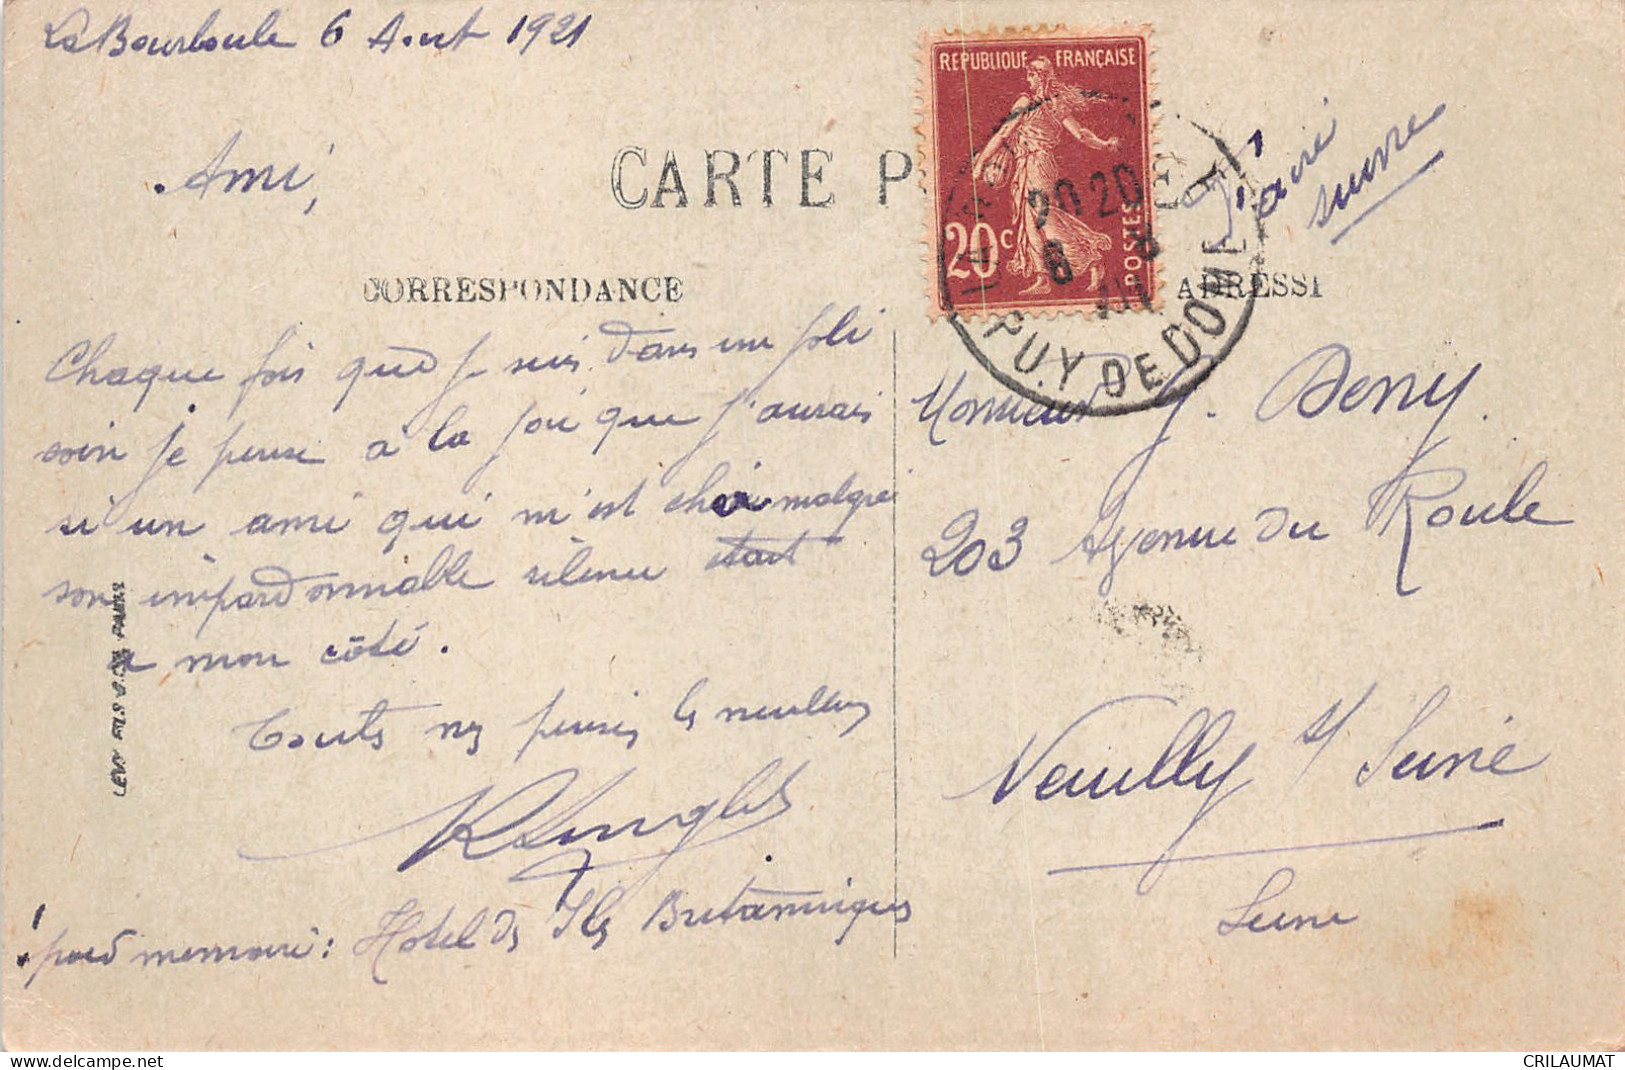 La Bourboule 6 Aout 1921
REPUBLIQUE FRANÇAISE
20c
POSTES
20 20
6 8
PUY DE DOME
Faire
suivre
Ami,
CARTE P
CORRESPONDANCE
Chaque fois que je suis dans un joli
coin je pense à la joie que j'aurais
si un ami qui m'est cher malgré
son impardonnable silence était
à mon côté.
Toutes mes pensées les meilleures
pour memoire : Hotel des Iles Britanniques
LEVY FILS & Cie PARIS
ADRESSE
Monsieur J. Deny.
203 Avenue du Roule
Neuilly s/ Seine
Seine
https://www.delcampe.net
CRILAUMAT